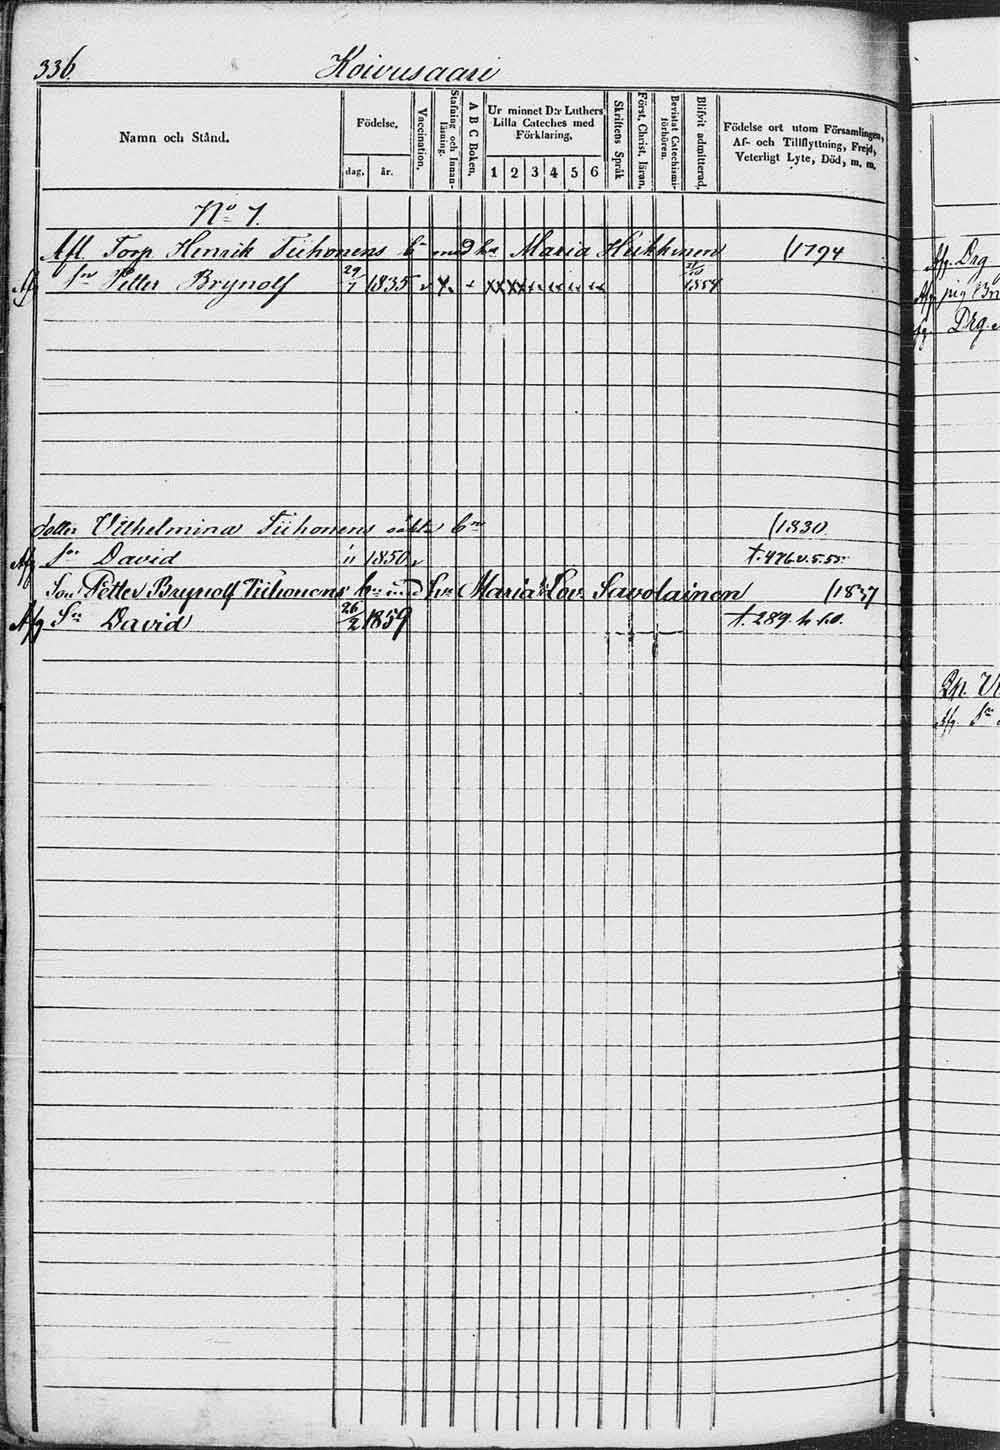 336. Koivusaari
Namn och Stånd.
Födelse,
dag, år.
Vaccination.
Stafning och Innanläsning.
A B C Boken.
Ur minnet D:r Luthers
Lilla Cateches med
Förklaring,
1 2 3 4 5 6
Skriftens Språk
Först. Christ. läran.
Bevistat Catechismiförhören.
Blifvit admitterad.
Födelse ort utom Församlingen,
Af- och Tillflyttning, Frejd,
Veterligt Lyte, Död, m. m.
No 1.
Afl. Torp. Henrik Tiihonens bn med hu Maria Heikkinen (1794
Afg Sn Petter Brynolf 29/7 1835 1854
dotter Vilhelmina Tiihonens oäkta bn (1830
Afg Sn David 1850 †.
Son Petter Brynolf Tiihonens bn med hu Maria Lov. Savolainen (1837
Afg Sn David 26/2 1859 †. 289.
Afg. Drg
Afg. pig
Afg. Drg.
Afg. Sn